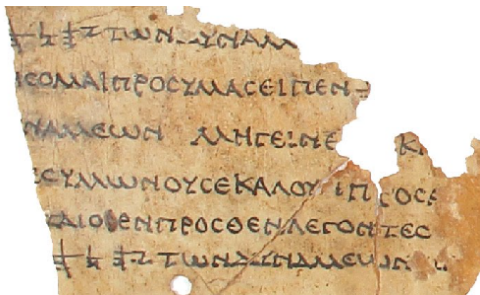 𐤉𐤄𐤅𐤄ΤΩΝΔΥΝΑΜ
ϹΟΜΑΙΠΡΟϹΥΜΑϹΕΙΠΕΝ
ΝΑΜΕΩΝ ΜΗΓΕΙΝΕ Κ
ϹΥΜΩΝΟΥϹΕΚΑΛΟΥ ΠΡΟϹΑ
ΤΑΙΟΙΕΝΠΡΟϹΘΕΝΛΕΓΟΝΤΕϹ
𐤉𐤄𐤅𐤄ΤΩΝΔΥΝΑΜΕΩΝ